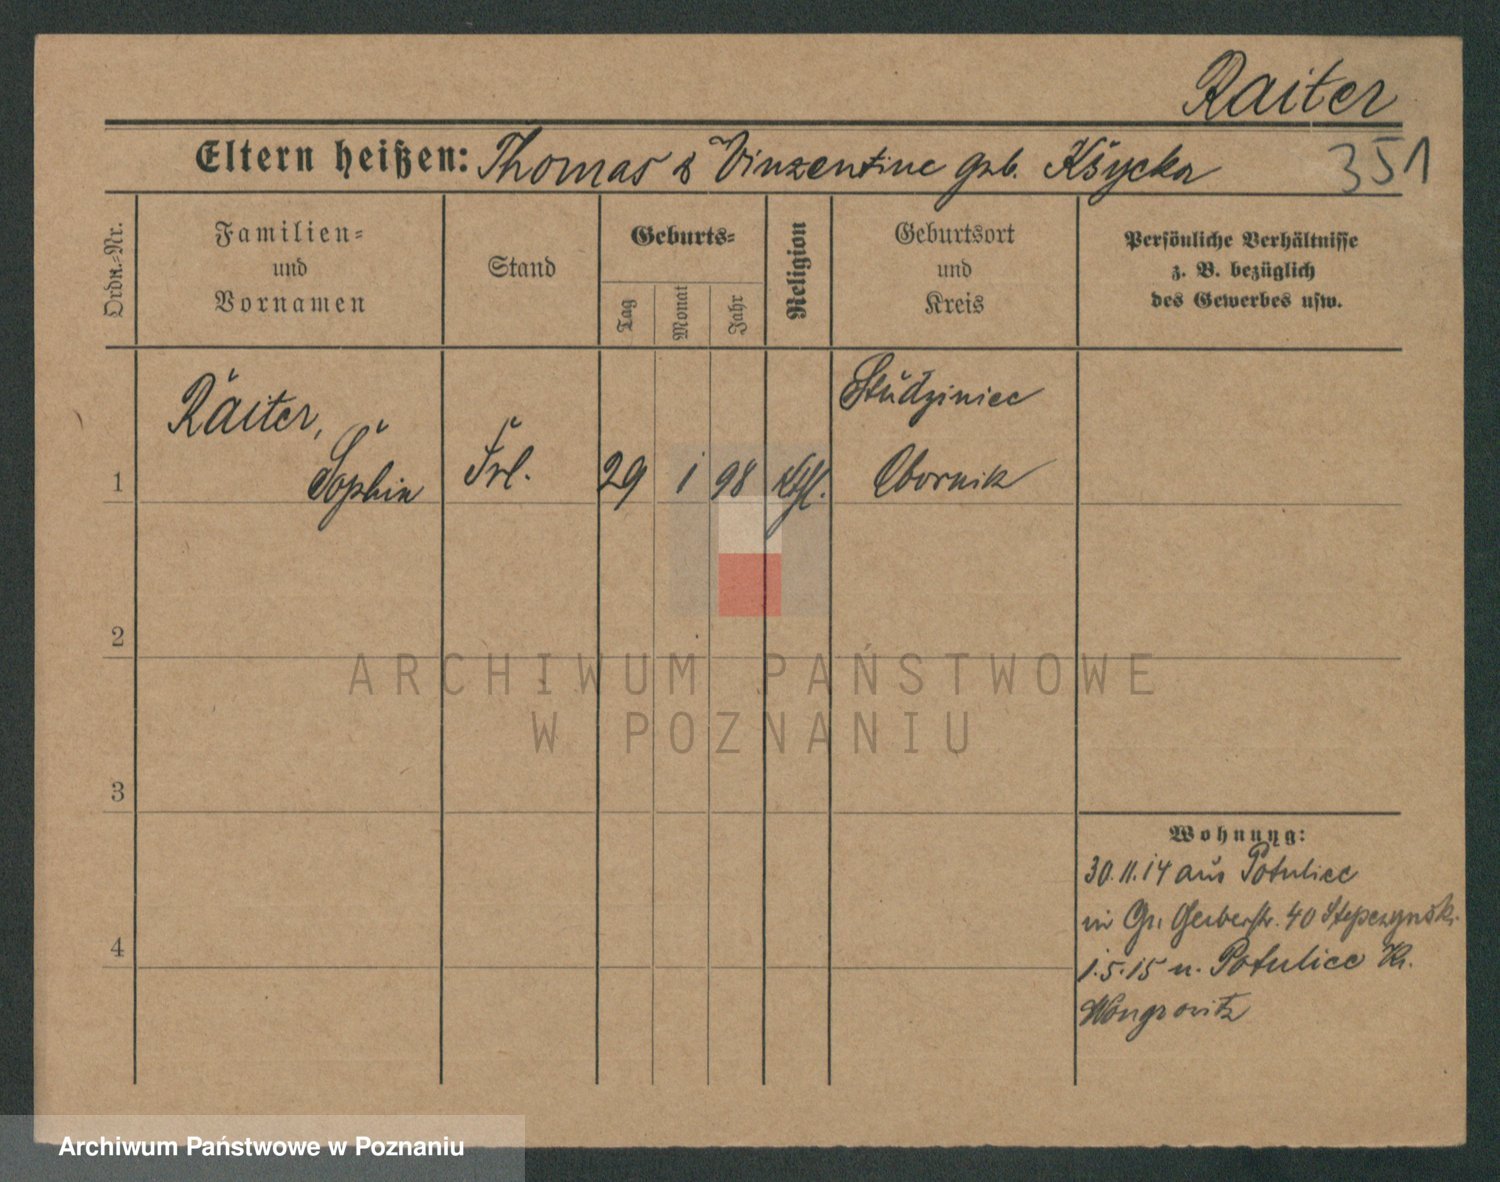 Raiter
351
Eltern heißen: Thomas & Vinzentine geb. Kšycka
Ordn.-Nr.
Familien-
und
Vornamen
Stand
Geburts-
Tag
Monat
Jahr
Religion
Geburtsort
und
Kreis
Persönliche Verhältnisse
z. B. bezüglich
des Gewerbes usw.
1
Raiter,
Sophie
Frl.
29 1 98
Kth.
Studziniec
Obornik
2
3
4
Wohnung:
30.11.14 aus Potulice
in Gr. Gerberstr. 40 Stepczynski
1.5.15 n. Potulice Kr.
Wongrowitz
ARCHIWUM PAŃSTWOWE
W POZNANIU
Archiwum Państwowe w Poznaniu